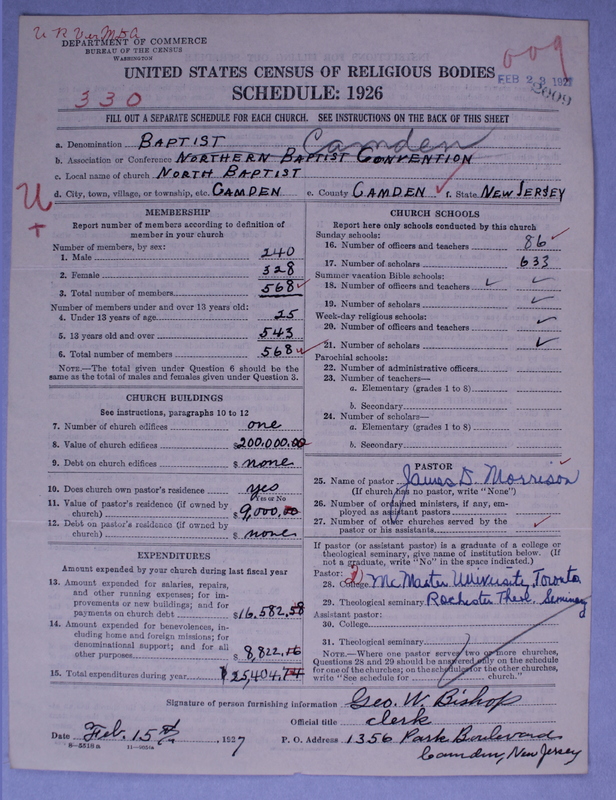 U R Ver M&A
DEPARTMENT OF COMMERCE
BUREAU OF THE CENSUS
WASHINGTON
609
UNITED STATES CENSUS OF RELIGIOUS BODIES
FEB 23 1927
SCHEDULE: 1926
2009
330
FILL OUT A SEPARATE SCHEDULE FOR EACH CHURCH. SEE INSTRUCTIONS ON THE BACK OF THIS SHEET
a. Denomination BAPTIST
Camden
b. Association or Conference NORTHERN BAPTIST CONVENTION
c. Local name of church NORTH BAPTIST
d. City, town, village, or township, etc. CAMDEN e. County CAMDEN f. State NEW JERSEY
U
+
MEMBERSHIP
Report number of members according to definition of
member in your church
Number of members, by sex:
1. Male 240
2. Female 328
3. Total number of members 568
Number of members under and over 13 years old:
4. Under 13 years of age 25
5. 13 years old and over 543
6. Total number of members 568
NOTE.—The total given under Question 6 should be the
same as the total of males and females given under Question 3.
CHURCH BUILDINGS
See instructions, paragraphs 10 to 12
7. Number of church edifices one
8. Value of church edifices $200,000.00
9. Debt on church edifices $ none
10. Does church own pastor's residence yes
Yes or No
11. Value of pastor's residence (if owned by
church) $9,000.00
12. Debt on pastor's residence (if owned by
church) $ none
EXPENDITURES
Amount expended by your church during last fiscal year
13. Amount expended for salaries, repairs,
and other running expenses; for im-
provements or new buildings; and for
payments on church debt $16,582.58
14. Amount expended for benevolences, in-
cluding home and foreign missions; for
denominational support; and for all
other purposes $8,822.16
15. Total expenditures during year $25,404.74
CHURCH SCHOOLS
Report here only schools conducted by this church
Sunday schools:
16. Number of officers and teachers 86
17. Number of scholars 633
Summer vacation Bible schools:
18. Number of officers and teachers ✓ ✓
19. Number of scholars ✓
Week-day religious schools:
20. Number of officers and teachers ✓
21. Number of scholars ✓
Parochial schools:
22. Number of administrative officers
23. Number of teachers—
a. Elementary (grades 1 to 8)
b. Secondary
24. Number of scholars—
a. Elementary (grades 1 to 8)
b. Secondary
PASTOR
25. Name of pastor James D. Morrison
(If church has no pastor, write "None")
26. Number of ordained ministers, if any, em-
ployed as assistant pastors
27. Number of other churches served by the
pastor or his assistants
If pastor (or assistant pastor) is a graduate of a college or
theological seminary, give name of institution below. (If
not a graduate, write "No" in the space indicated.)
Pastor:
28. College Mc Master University, Toronto
29. Theological seminary Rochester Theol. Seminary
Assistant pastor:
30. College
31. Theological seminary
NOTE.—Where one pastor serves two or more churches,
Questions 28 and 29 should be answered only on the schedule
for one of the churches; on the schedules for the other churches,
write "See schedule for church."
Signature of person furnishing information Geo. W. Bishop
Official title Clerk
Date Feb. 15th, 1927 P. O. Address 1356 Park Boulevard
8—5518 a
Camden, New Jersey